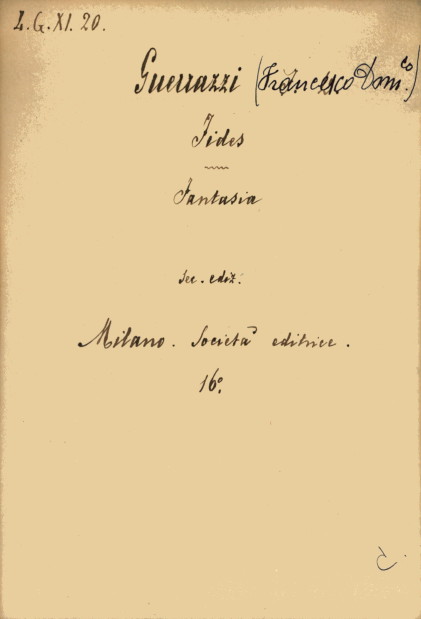 L.G.XI.20.
Guerrazzi (Francesco Dom.co)
Fides
Fantasia
sec. ediz.
Milano. Società editrice.
16o.
C.